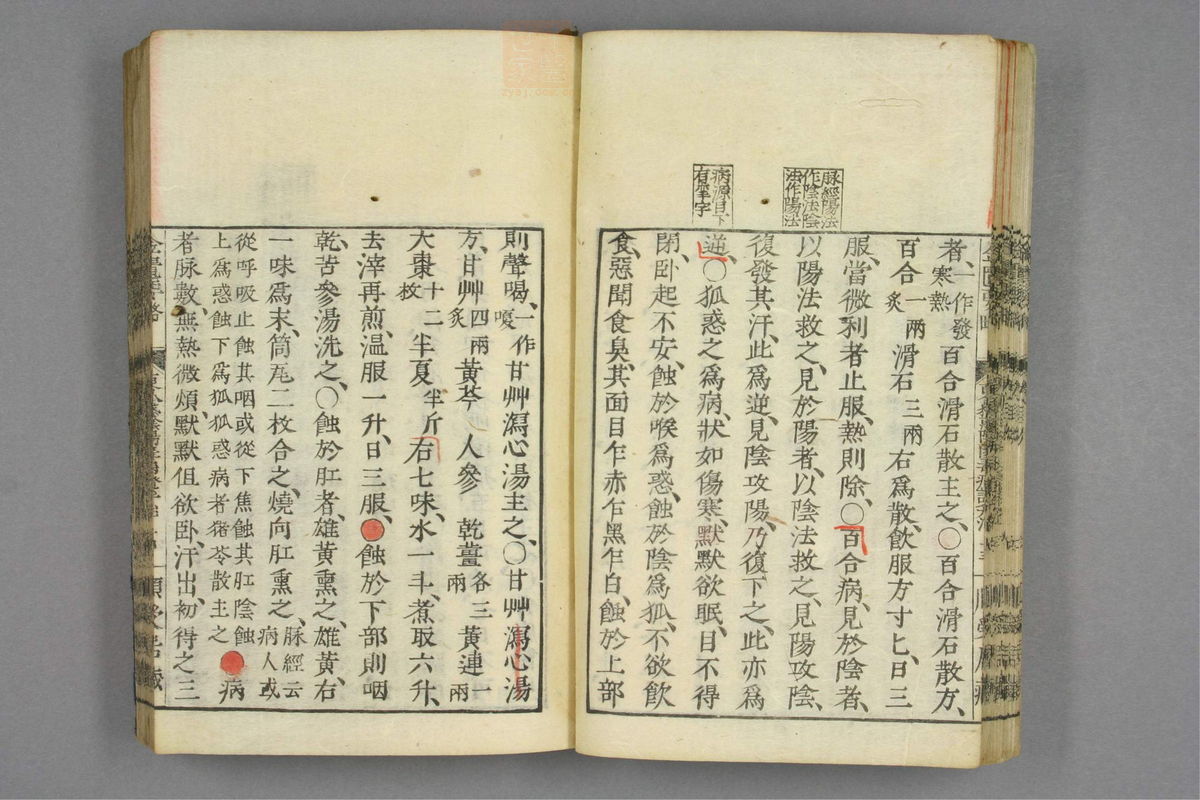 脉經陽法
作陰法陰
法作陽法
病源目下
有牽字
者、一作發寒熱百合滑石散主之、○百合滑石散方、
百合一兩炙滑石三兩右爲散、飲服方寸匕、日三
服、當微利者止服、熱則除、○百合病、見於陰者、
以陽法救之、見於陽者、以陰法救之、見陽攻陰、
復發其汗、此爲逆、見陰攻陽、乃復下之、此亦爲
逆、○狐惑之爲病、狀如傷寒、默默欲眠、目不得
閉、臥起不安、蝕於喉爲惑、蝕於陰爲狐、不欲飲
食、惡聞食臭、其面目乍赤乍黑乍白、蝕於上部
則聲喝、一作嗄甘艸瀉心湯主之、○甘艸瀉心湯
方、甘艸四兩炙黃芩人參乾薑各三兩黃連一兩
大棗十二枚半夏半斤右七味、水一斗、煮取六升、
去滓再煎、温服一升、日三服、蝕於下部則咽
乾、苦參湯洗之、○蝕於肛者、雄黃熏之、雄黃、右
一味爲末、筒瓦二枚合之、燒向肛熏之、脉經云病人或
從呼吸上蝕其咽或從下焦蝕其肛陰蝕
上爲惑蝕下爲狐狐惑病者猪苓散主之病
者脉數、無熱微煩、默默但欲臥、汗出、初得之三